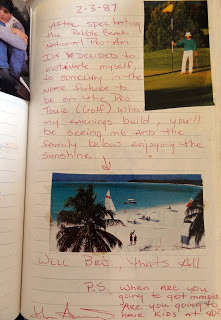 2-3-87
After spectating
the Pebble Beach
National Pro-Am
I've decided to
motivate myself,
to someway in the
near future to
be on the Pro
Tour (Golf) With
my earnings build, you'll
be seeing me and the
family below enjoying the
sunshine.
Well Bro., thats All
P.S. When are you
going to get married
Are you going to
have kids at 40